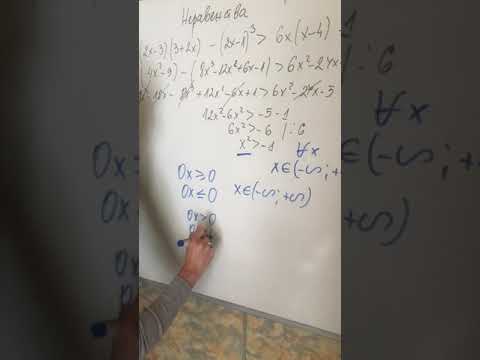 Неравенства
2x-3)(3+2x) - (2x-1)³ > 6x(x-4)
4x²-9) - (8x³-12x²+6x-1) > 6x²-24x-
- 8x³ + 12x² - 6x + 1 > 6x² - 24x - 5
12x²-6x² > -5-1
6x² > -6 | : 6
x² > -1 ∀x
0x ≥ 0 x∈(-∞; +∞
0x ≤ 0 x∈(-∞; +∞)
0x > 0